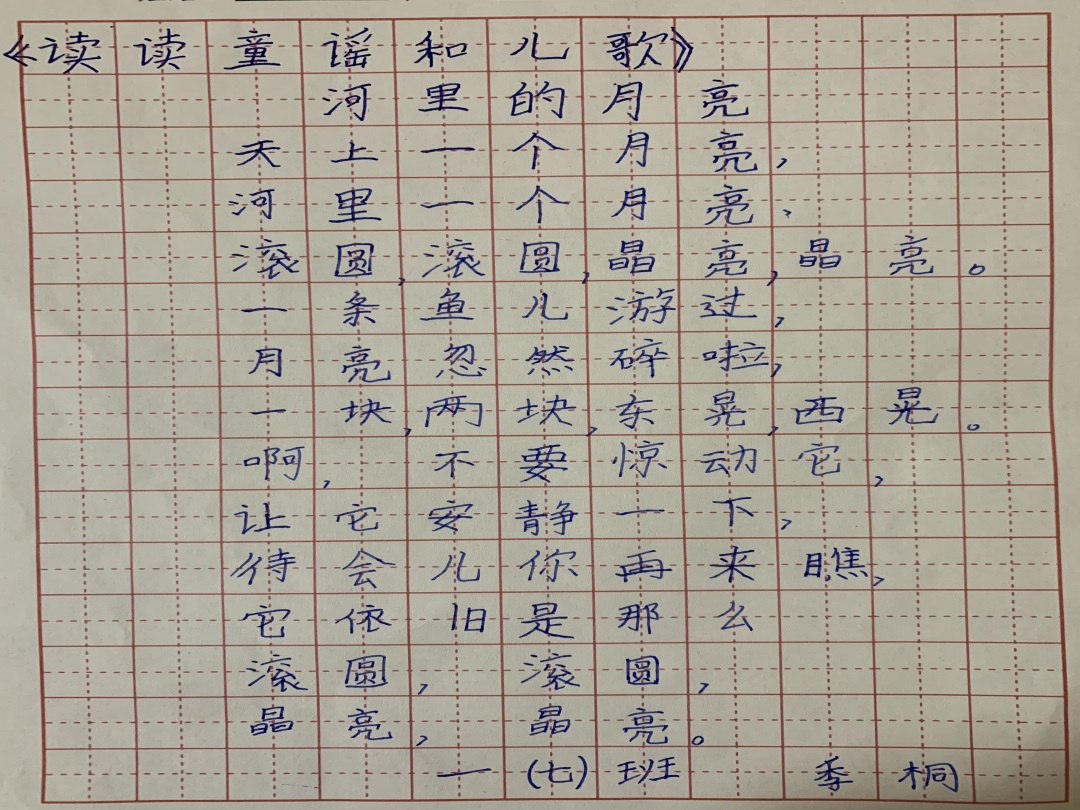 《读读童谣和儿歌》
河里的月亮
天上一个月亮，
河里一个月亮、
滚圆，滚圆，晶亮，晶亮。
一条鱼儿游过，
月亮忽然碎啦，
一块，两块，东晃，西晃。
啊，不要惊动它，
让它安静一下，
待会儿你再来瞧，
它依旧是那么
滚圆，滚圆，
晶亮，晶亮。
一（七）班 季桐